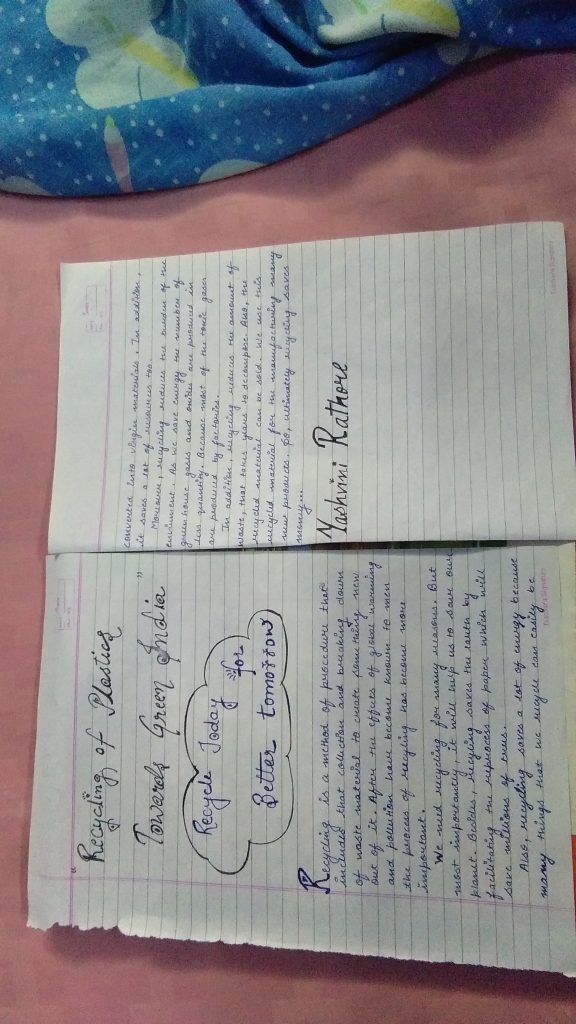 "Recycling of Plastics
Towards Green India"
Recycle Today
for
Better tomorrow
Recycling is a method of procedure that
includes that collection and breaking down
of waste material to create something new
out of it. After the effects of global warming
and pollution have become known to men
the process of recycling has become more
important.
We need recycling for many reasons. But
most importantly, it will help us to save our
planet. Besides, recycling saves the earth by
facilitating the reprocess of paper which will
save millions of trees.
Also, recycling saves a lot of energy because
many things that we recycle can easily be
converted into virgin materials. In addition,
it saves a lot of resources too.
Moreover, recycling reduces the burden of the
enviroment. As we save energy the number of
greenhouse gases and oxides are produced in
less quantity. Because most of the toxic gases
are produced by factories.
In addition, recycling reduces the amount of
waste, that takes years to decompose. Also, the
recycled material can be sold. We use this
recycled material for the manufacturing many
new products. So, ultimately recycling saves
money...
Yashvini Rathore